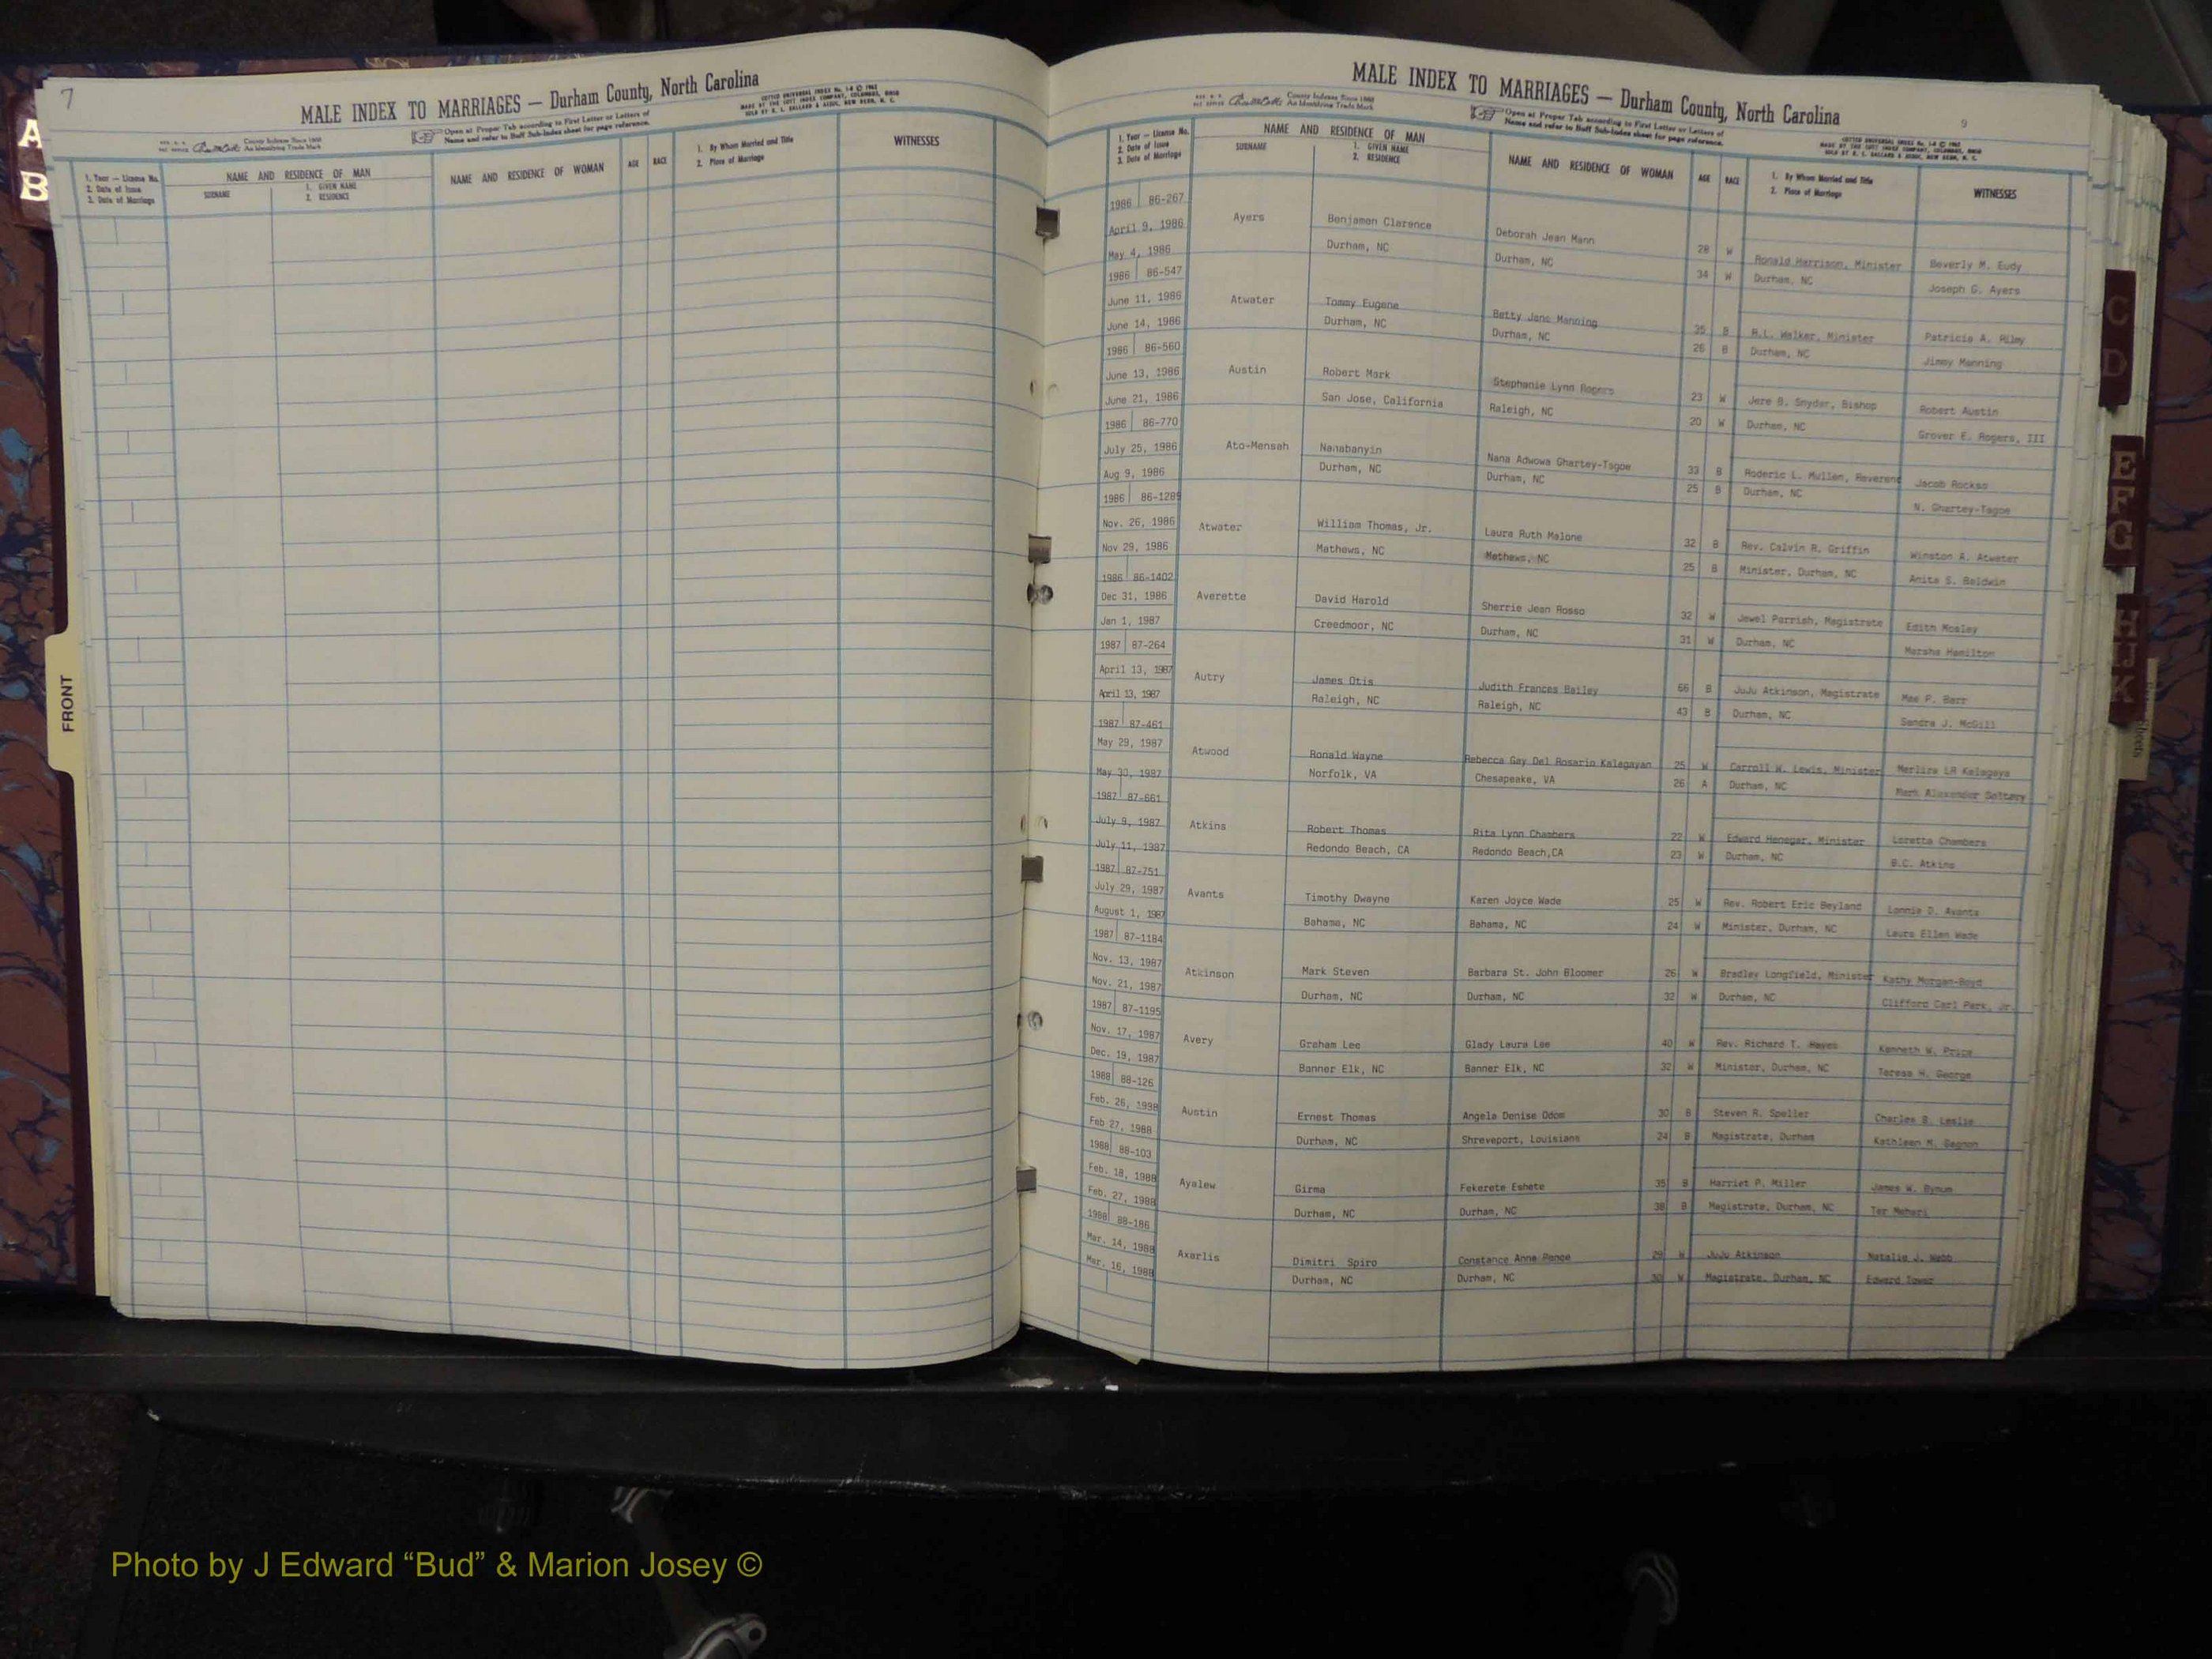 7
MALE INDEX TO MARRIAGES — Durham County, North Carolina
County Indexes Since 1888
An Identifying Trade Mark
Open at Proper Tab according to First Letter or Letters of
Name and refer to Buff Sub-Index sheet for page reference.
1. Year — License No.
2. Date of Issue
3. Date of Marriage
NAME AND RESIDENCE OF MAN
SURNAME
1. GIVEN NAME
2. RESIDENCE
NAME AND RESIDENCE OF WOMAN
AGE
RACE
1. By Whom Married and Title
2. Place of Marriage
WITNESSES
A
B
FRONT
MALE INDEX TO MARRIAGES — Durham County, North Carolina
9
County Indexes Since 1888
An Identifying Trade Mark
Open at Proper Tab according to First Letter or Letters of
Name and refer to Buff Sub-Index sheet for page reference.
1. Year — License No.
2. Date of Issue
3. Date of Marriage
NAME AND RESIDENCE OF MAN
SURNAME
1. GIVEN NAME
2. RESIDENCE
NAME AND RESIDENCE OF WOMAN
AGE
RACE
1. By Whom Married and Title
2. Place of Marriage
WITNESSES
1986 86-267
April 9, 1986 Ayers Benjamen Clarence Deborah Jean Mann 28 W Ronald Harrison, Minister Beverly M. Eudy
May 4, 1986 Durham, NC Durham, NC 34 W Durham, NC Joseph G. Ayers
1986 86-547
June 11, 1986 Atwater Tommy Eugene Betty Jane Manning 35 B R.L. Walker, Minister Patricia A. Riley
June 14, 1986 Durham, NC Durham, NC 26 B Durham, NC Jimmy Manning
1986 86-560
June 13, 1986 Austin Robert Mark Stephanie Lynn Rogers 23 W Jere B. Snyder, Bishop Robert Austin
June 21, 1986 San Jose, California Raleigh, NC 20 W Durham, NC Grover E. Rogers, III
1986 86-770
July 25, 1986 Ato-Mensah Nanabanyin Nana Adwowa Ghartey-Tagoe 33 B Roderic L. Mullen, Reverend Jacob Rockso
Aug 9, 1986 Durham, NC Durham, NC 25 B Durham, NC N. Ghartey-Tagoe
1986 86-1289
Nov. 26, 1986 Atwater William Thomas, Jr. Laura Ruth Malone 32 B Rev. Calvin R. Griffin Winston A. Atwater
Nov 29, 1986 Mathews, NC Mathews, NC 25 B Minister, Durham, NC Anita S. Baldwin
1986 86-1402
Dec 31, 1986 Averette David Harold Sherrie Jean Rosso 32 W Jewel Parrish, Magistrate Edith Mosley
Jan 1, 1987 Creedmoor, NC Durham, NC 31 W Durham, NC Marsha Hamilton
1987 87-264
April 13, 1987 Autry James Otis Judith Frances Bailey 66 B JuJu Atkinson, Magistrate Mae P. Barr
April 13, 1987 Raleigh, NC Raleigh, NC 43 B Durham, NC Sandra J. McGill
1987 87-461
May 29, 1987 Atwood Ronald Wayne Rebecca Gay Del Rosario Kalagayan 25 W Carroll W. Lewis, Minister Merlira LR Kalagaya
May 30, 1987 Norfolk, VA Chesapeake, VA 26 A Durham, NC Mark Alexander
1987 87-661
July 9, 1987 Atkins Robert Thomas Rita Lynn Chambers 22 W Edward Henegar, Minister Loretta Chambers
July 11, 1987 Redondo Beach, CA Redondo Beach,CA 23 W Durham, NC B.C. Atkins
1987 87-751
July 29, 1987 Avants Timothy Dwayne Karen Joyce Wade 25 W Rev. Robert Eric Beyland Lonnie D. Avants
August 1, 1987 Bahama, NC Bahama, NC 24 W Minister, Durham, NC Laura Ellen Wade
1987 87-1184
Nov. 13, 1987 Atkinson Mark Steven Barbara St. John Bloomer 26 W Bradley Longfield, Minister Kathy Morgan-Boyd
Nov. 21, 1987 Durham, NC Durham, NC 32 W Durham, NC Clifford Carl Park, Jr.
1987 87-1195
Nov. 17, 1987 Avery Graham Lee Glady Laura Lee 40 W Rev. Richard T. Hayes Kenneth W. Price
Dec. 19, 1987 Banner Elk, NC Banner Elk, NC 32 W Minister, Durham, NC Teresa H. George
1988 88-126
Feb. 26, 1998 Austin Ernest Thomas Angela Denise Odom 30 B Steven R. Speller Charles B. Leslie
Feb 27, 1988 Durham, NC Shreveport, Louisiana 24 B Magistrate, Durham Kathleen M. Gagnon
1988 88-103
Feb. 18, 1988 Ayalew Girma Fekerete Eshete 35 B Harriet P. Miller James W. Bynum
Feb. 27, 1988 Durham, NC Durham, NC 38 B Magistrate, Durham, NC Ter Mehari
1988 88-186
Mar. 14, 1988 Axarlis Dimitri Spiro Constance Anne Ponce 29 W JuJu Atkinson Natalie J. Webb
Mar. 16, 1988 Durham, NC Durham, NC 30 W Magistrate, Durham, NC Edward
C
D
E
F
G
H
IJ
K
Photo by J Edward “Bud” & Marion Josey ©